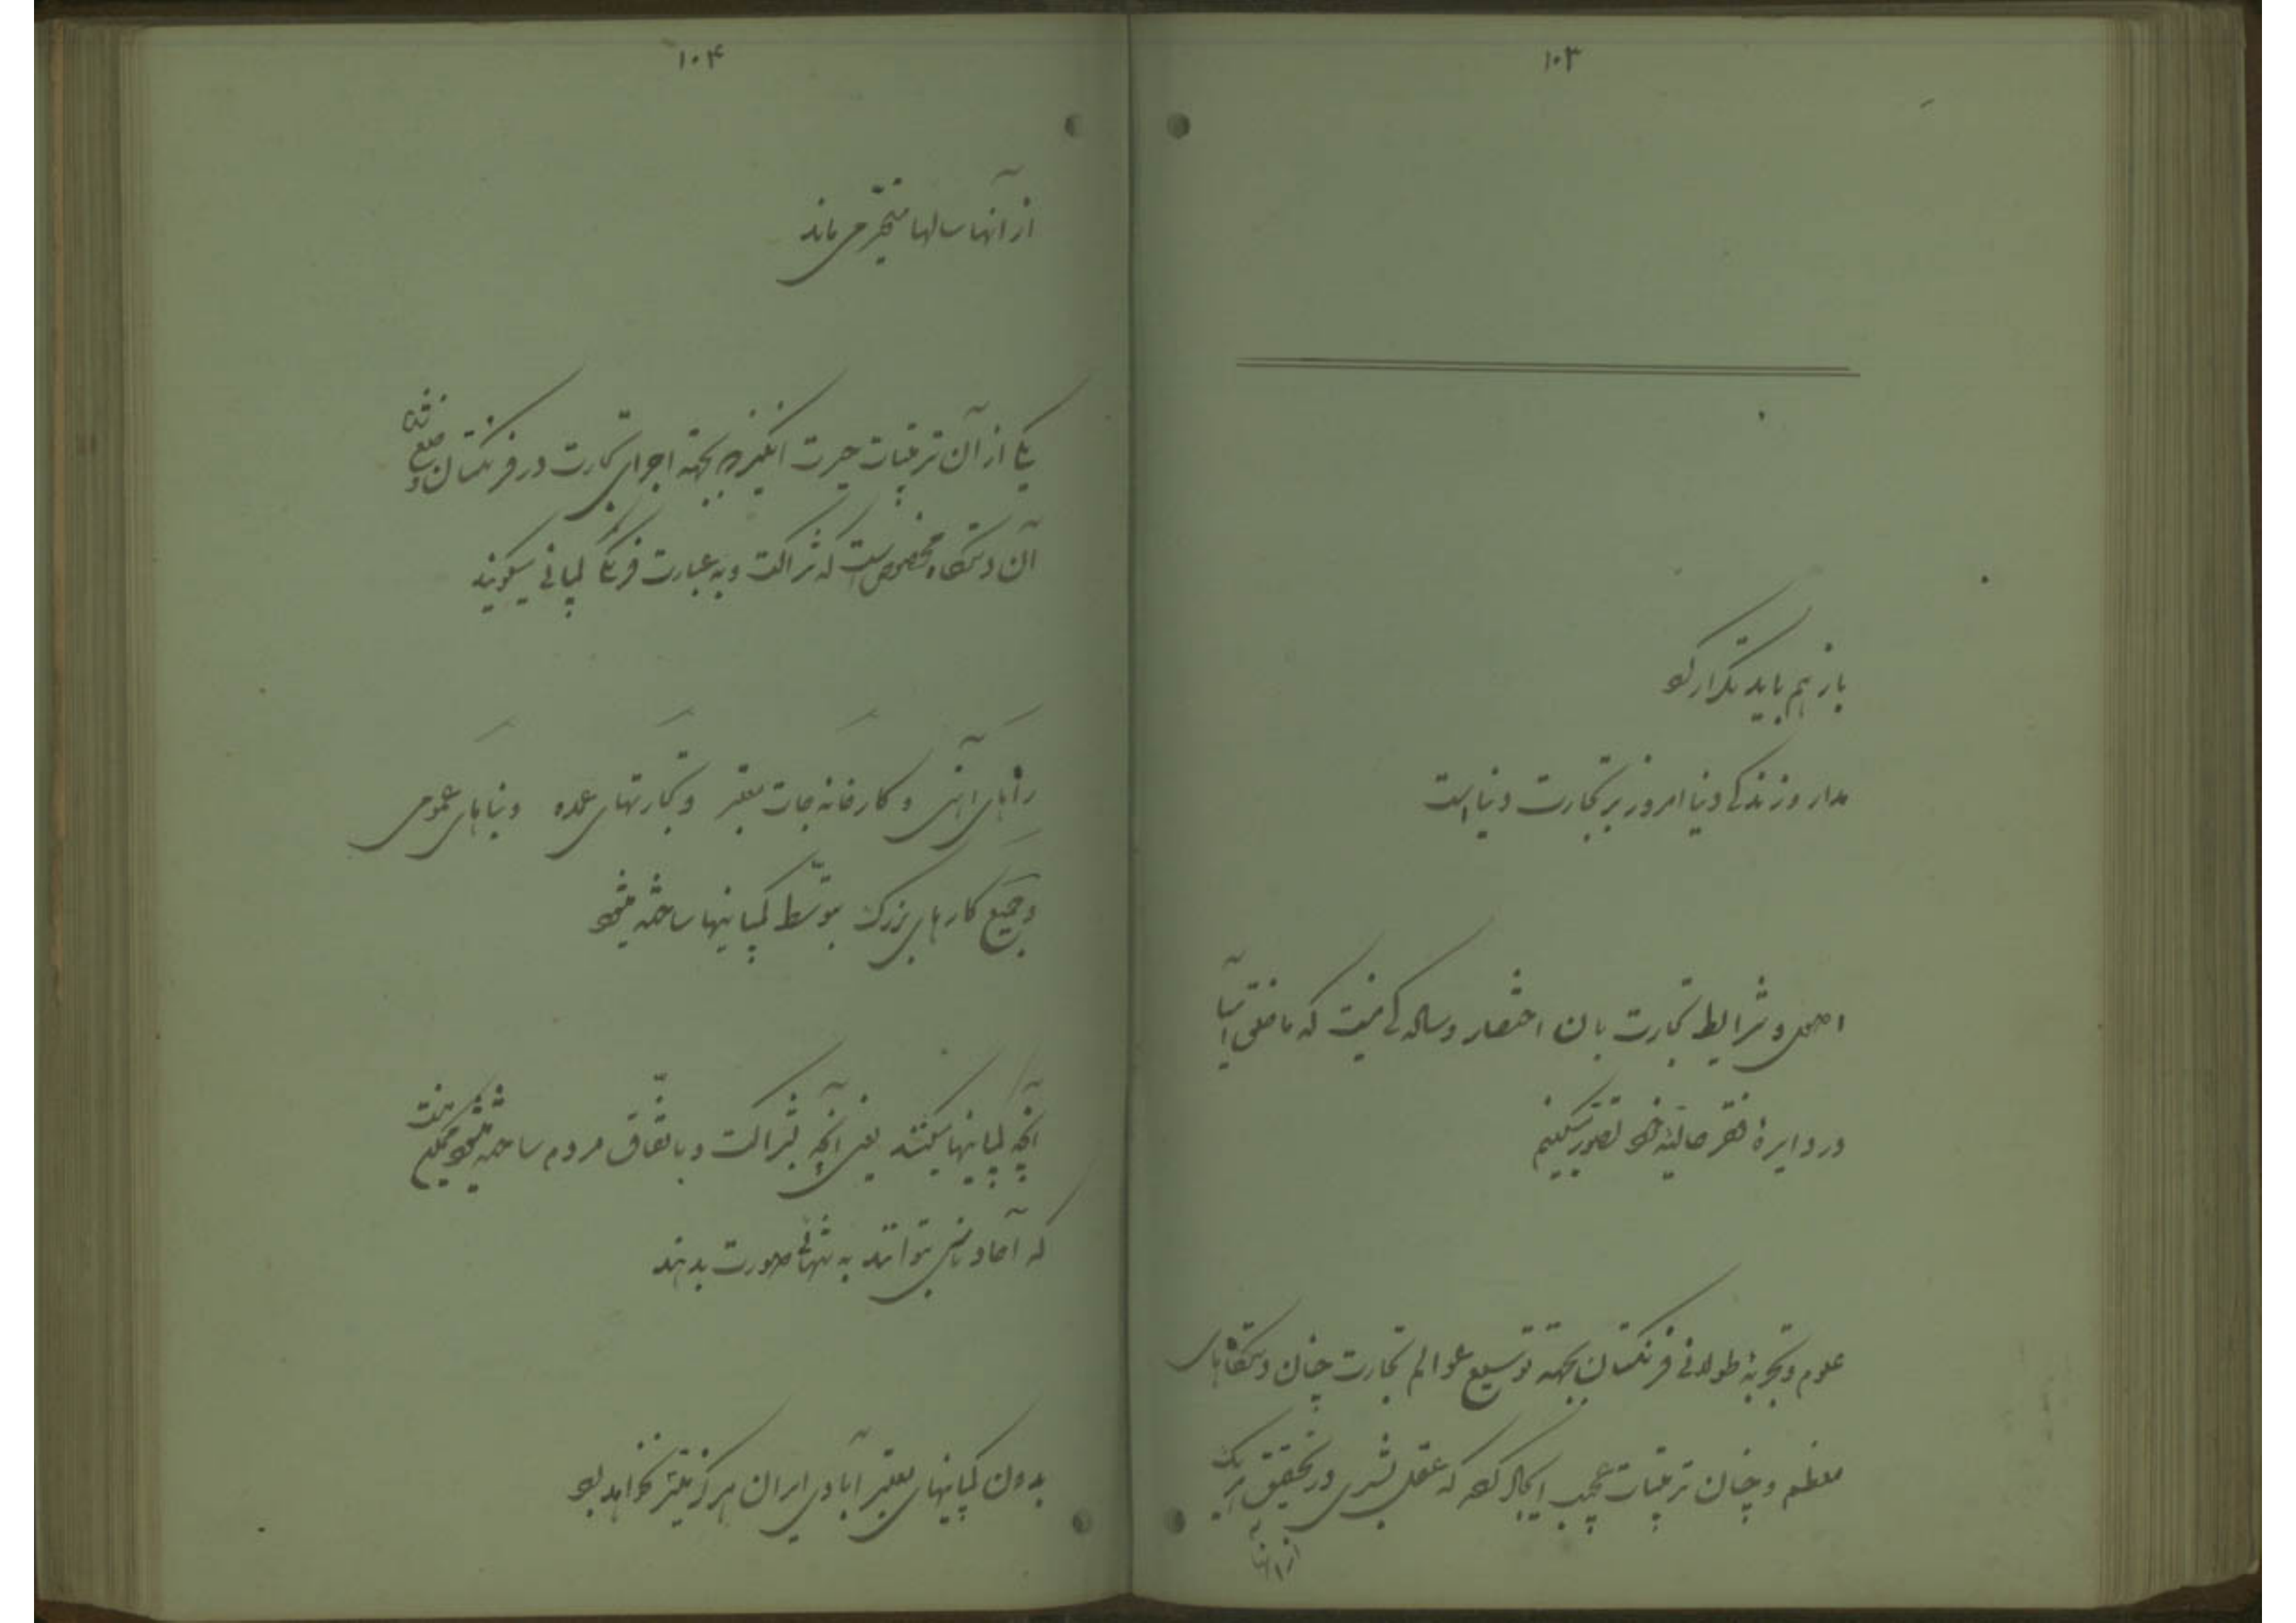 ۱۰۳
باز هم باید تکرار کرد
مدار و زندگی دنیا امروز بر تجارت دنیا است
اصول و شرایط تجارت بان اختصار و سادگی نیست که ما خلق آسیا
در دایرهٔ فقر حالیهٔ خود تصور میکنیم
علوم و تجربهٔ طولانی فرنگستان بجهة توسیع عوالم تجارت چنان دستگاه‌های
معظم و چنان ترتیبات عجیب ایجاد کرده که عقل بشری در تحقیق هر یک
از آنها
۱۰۴
از آنها سالها متحیر می ماند
یکی از آن ترتیبات حیرت انگیز که بجهة اجرای تجارت در فرنگستان وضع شده
آن دستگاه مخصوص است که شراکت و به عبارت فرنگی کمپانی میگویند
راههای آهنی و کارخانه جات معتبر و تجارتهای عمده و بناهای عمومی
و جمیع کارهای بزرگ بتوسّط کمپانیها ساخته میشود
آنچه کمپانیها میکنند یعنی آنچه بشراکت و باتّفاق مردم ساخته میشود ممکن نیست
که آحاد ناس بتوانند به تنهائی صورت بدهند
بدون کمپانیهای معتبر آبادی ایران هرگز میسر نخواهد بود